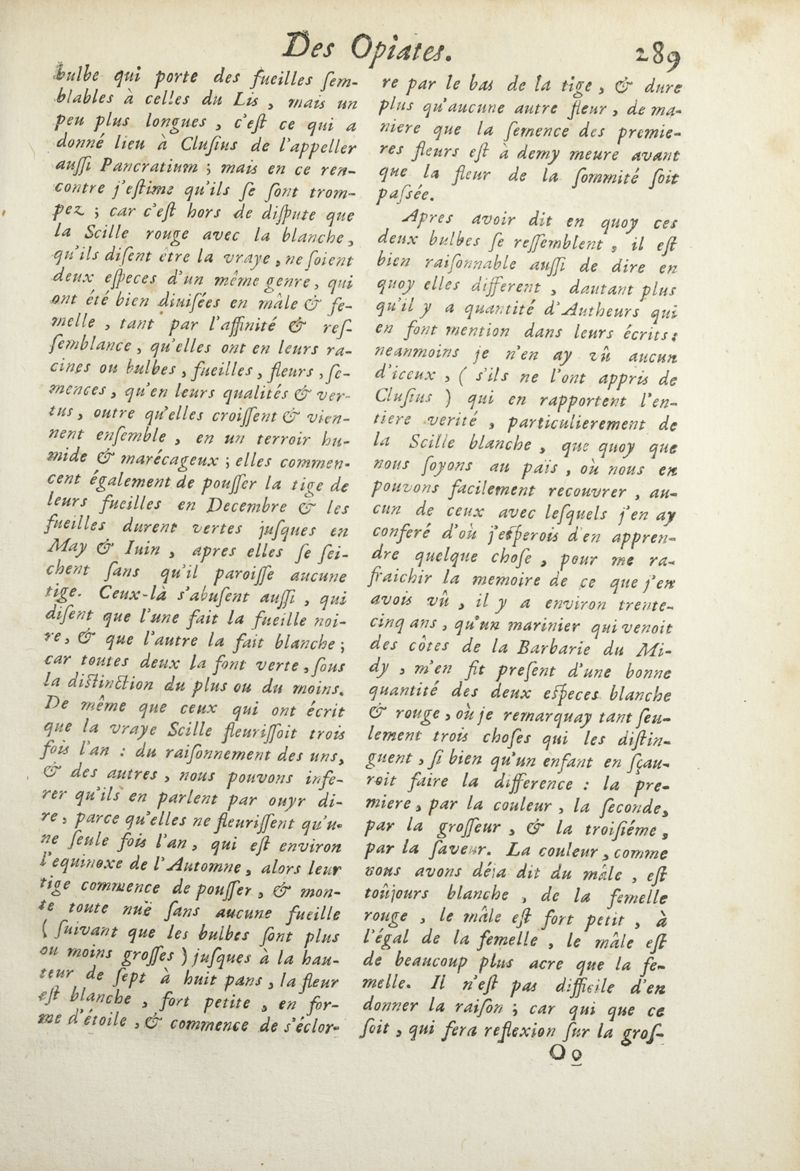 Des Opiates. 289
bulbe qui porte des fueilles ſem-
blables à celles du Lis , mais un
peu plus longues , c'eſt ce qui a
donné lieu à Cluſius de l'appeller
auſſi Pancratium ; mais en ce ren-
contre j'eſtime qu'ils ſe ſont trom-
pez ; car c'eſt hors de diſpute que
la Scille rouge avec la blanche,
qu'ils diſent être la vraye , ne ſoient
deux eſpeces d'un même genre, qui
ont été bien diuiſées en mâle & fe-
melle , tant par l'affinité & reſ-
ſemblance , qu'elles ont en leurs ra-
cines ou bulbes , fueilles , fleurs , ſe-
mences , qu'en leurs qualités & ver-
tus , outre qu'elles croiſſent & vien-
nent enſemble , en un terroir hu-
mide & marécageux ; elles commen-
cent également de pouſſer la tige de
leurs fueilles en Decembre & les
fueilles durent vertes juſques en
May & Iuin , apres elles ſe ſei-
chent ſans qu'il paroiſſe aucune
tige. Ceux-là s'abuſent auſſi , qui
diſent que l'une fait la fueille noi-
re, & que l'autre la fait blanche ;
car toutes deux la font verte , ſous
la diſtinction du plus ou du moins.
De même que ceux qui ont écrit
que la vraye Scille fleuriſſoit trois
fois l'an : du raiſonnement des uns,
& des autres , nous pouvons infe-
rer qu'ils en parlent par ouyr di-
re , parce qu'elles ne fleuriſſent qu'u-
ne ſeule fois l'an , qui eſt environ
l'equinoxe de l'Automne , alors leur
tige commence de pouſſer , & mon-
te toute nuë ſans aucune fueille
( ſuivant que les bulbes ſont plus
ou moins groſſes ) juſques à la hau-
teur de ſept à huit pans , la fleur
eſt blanche , fort petite , en for-
me d'étoile , & commence de s'éclor-
re par le bas de la tige , & dure
plus qu'aucune autre fleur , de ma-
niere que la ſemence des premie-
res fleurs eſt à demy meure avant
que la fleur de la ſommité ſoit
paſsée.
Apres avoir dit en quoy ces
deux bulbes ſe reſſemblent , il eſt
bien raiſonnable auſſi de dire en
quoy elles different , dautant plus
qu'il y a quantité d'Autheurs qui
en font mention dans leurs écrits :
neanmoins je n'en ay vû aucun
d'iceux , ( s'ils ne l'ont appris de
Cluſius ) qui en rapportent l'en-
tiere verité , particulierement de
la Scille blanche , que quoy que
nous ſoyons au païs , où nous en
pouvons facilement recouvrer , au-
cun de ceux avec leſquels j'en ay
conferé d'où j'eſperois d'en appren-
dre quelque choſe , pour me ra-
fraichir la memoire de ce que j'en
avois vû , il y a environ trente-
cinq ans , qu'un marinier qui venoit
des côtes de la Barbarie du Mi-
dy , m'en fit preſent d'une bonne
quantité des deux eſpeces blanche
& rouge , où je remarquay tant ſeu-
lement trois choſes qui les diſtin-
guent , ſi bien qu'un enfant en ſçau-
roit faire la difference : la pre-
miere , par la couleur , la ſeconde,
par la groſſeur , & la troiſiéme ,
par la ſaveur. La couleur , comme
nous avons déja dit du mâle , eſt
toûjours blanche , de la femelle
rouge , le mâle eſt fort petit , à
l'égal de la femelle , le mâle eſt
de beaucoup plus acre que la fe-
melle. Il n'eſt pas difficile d'en
donner la raiſon ; car qui que ce
ſoit , qui fera reflexion ſur la groſ-
Oo